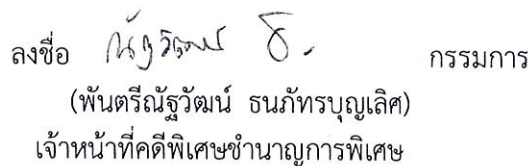 ลงชื่อ ณัฐวัฒน์ ธ. กรรมการ
(พันตรีณัฐวัฒน์ ธนภัทรบุญเลิศ)
เจ้าหน้าที่คดีพิเศษชำนาญการพิเศษ